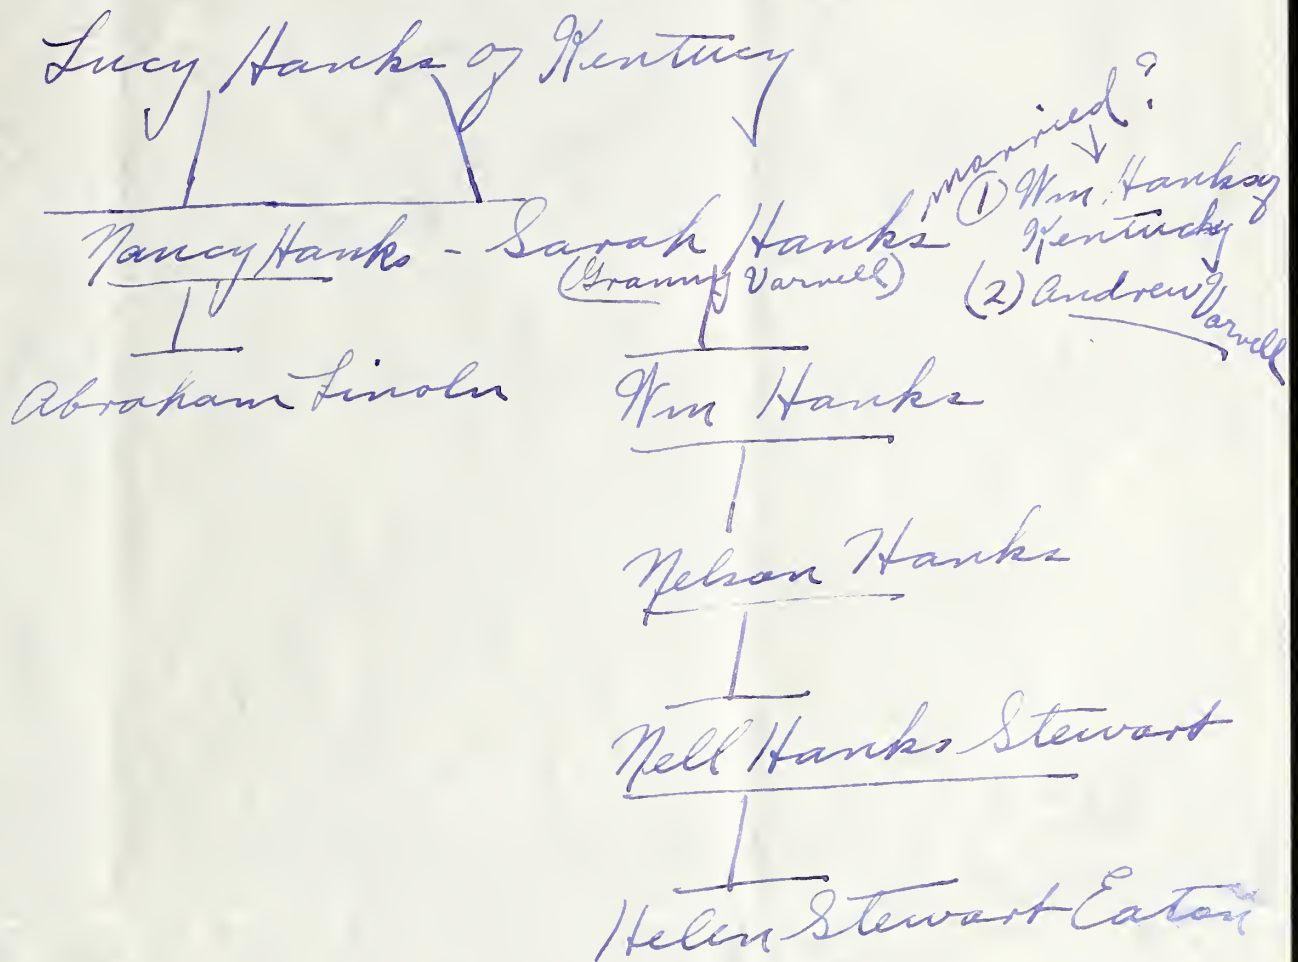 Lucy Hanks of Kentucy
married?
Nancy Hanks - Sarah Hanks
(Granny Varnell)
① Wm. Hanks of
Kentucky
(2) Andrew Varvell
Abraham Linoln
Wm Hanks
Nelson Hanks
Nell Hanks Stewart
Helen Stewart Eaton